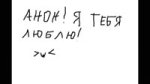 АНОН! Я ТЕБЯ
ЛЮБЛЮ!
>ω<